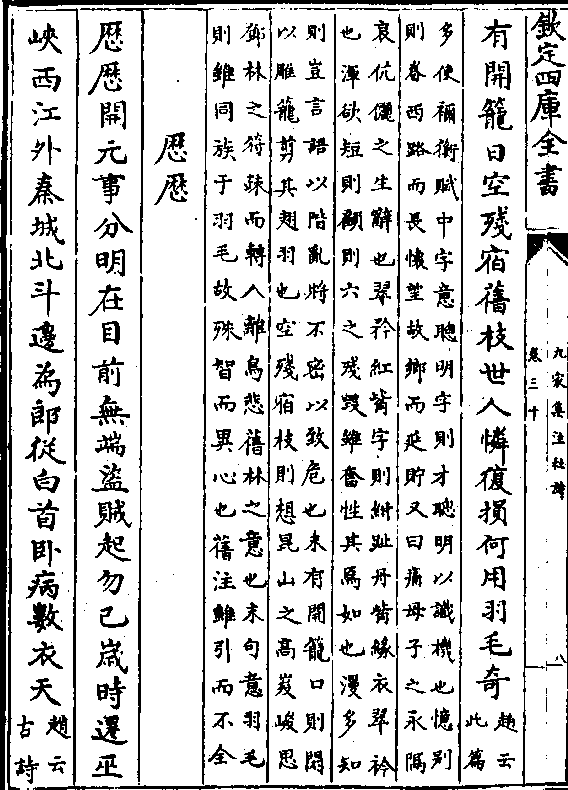 欽定四庫全書
九家集注杜詩
卷三十
八
有開籠日空殘宿舊枝世人憐復損何用羽毛奇趙云此篇
多使禰衡賦中字意聰明字則才聰明以識機也憶别
則眷西路而長懷望故鄉而延貯又曰痛母子之永隔
哀伉儷之生辭也翠衿紅觜字則紺趾丹觜緣衣翠衿
也渾欲短則顧則六之殘毀雖奮性其焉如也漫多知
則豈言語以階亂將不密以致危也未有開籠口則閉
以雕籠剪其翅羽也空殘宿枝則想昆山之高峻思
鄧林之符疎而轉入離鳥悲舊林之意也末句意羽毛
則雖同族于羽毛故殊智而異心也舊注雖引而不全
厯厯
厯厯開元事分明在目前無端盜賊起勿已嵗時遷巫
峽西江外秦城北斗邊為郎從白首卧病數衣天趙云古詩